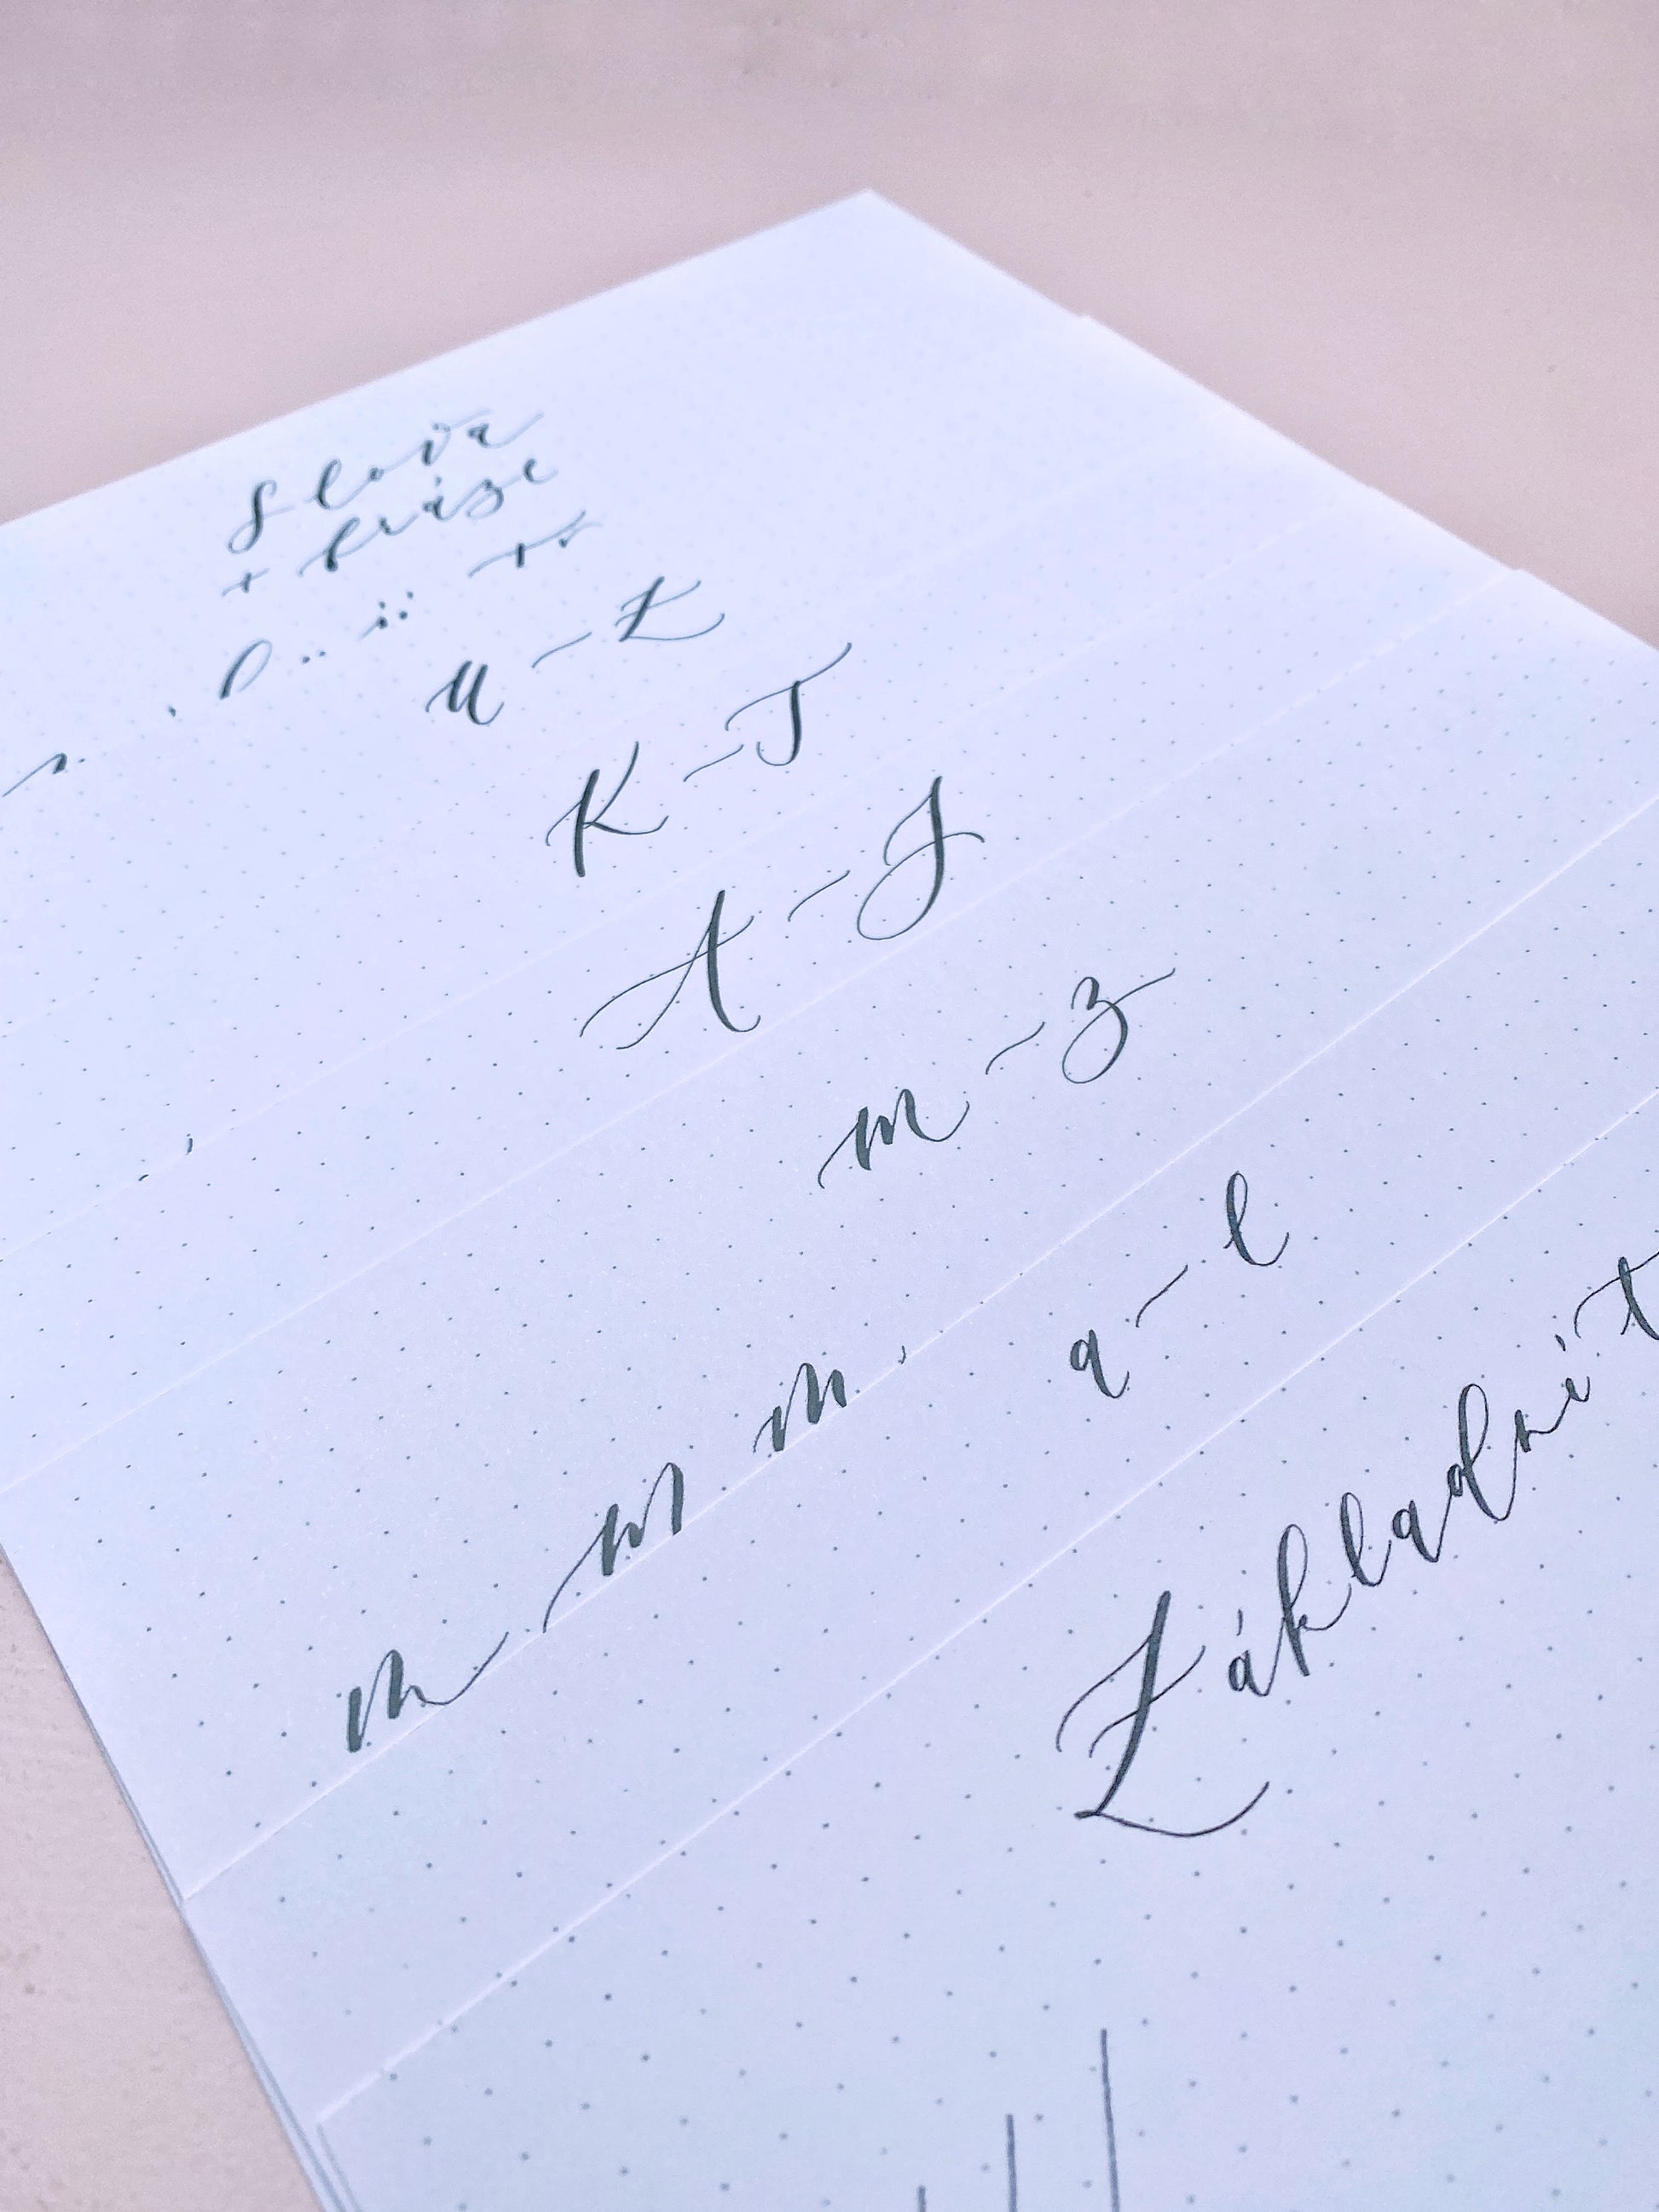 Slova
+ fráze
U - Z
K - T
A - J
m - z
m m m
a - l
Základní t